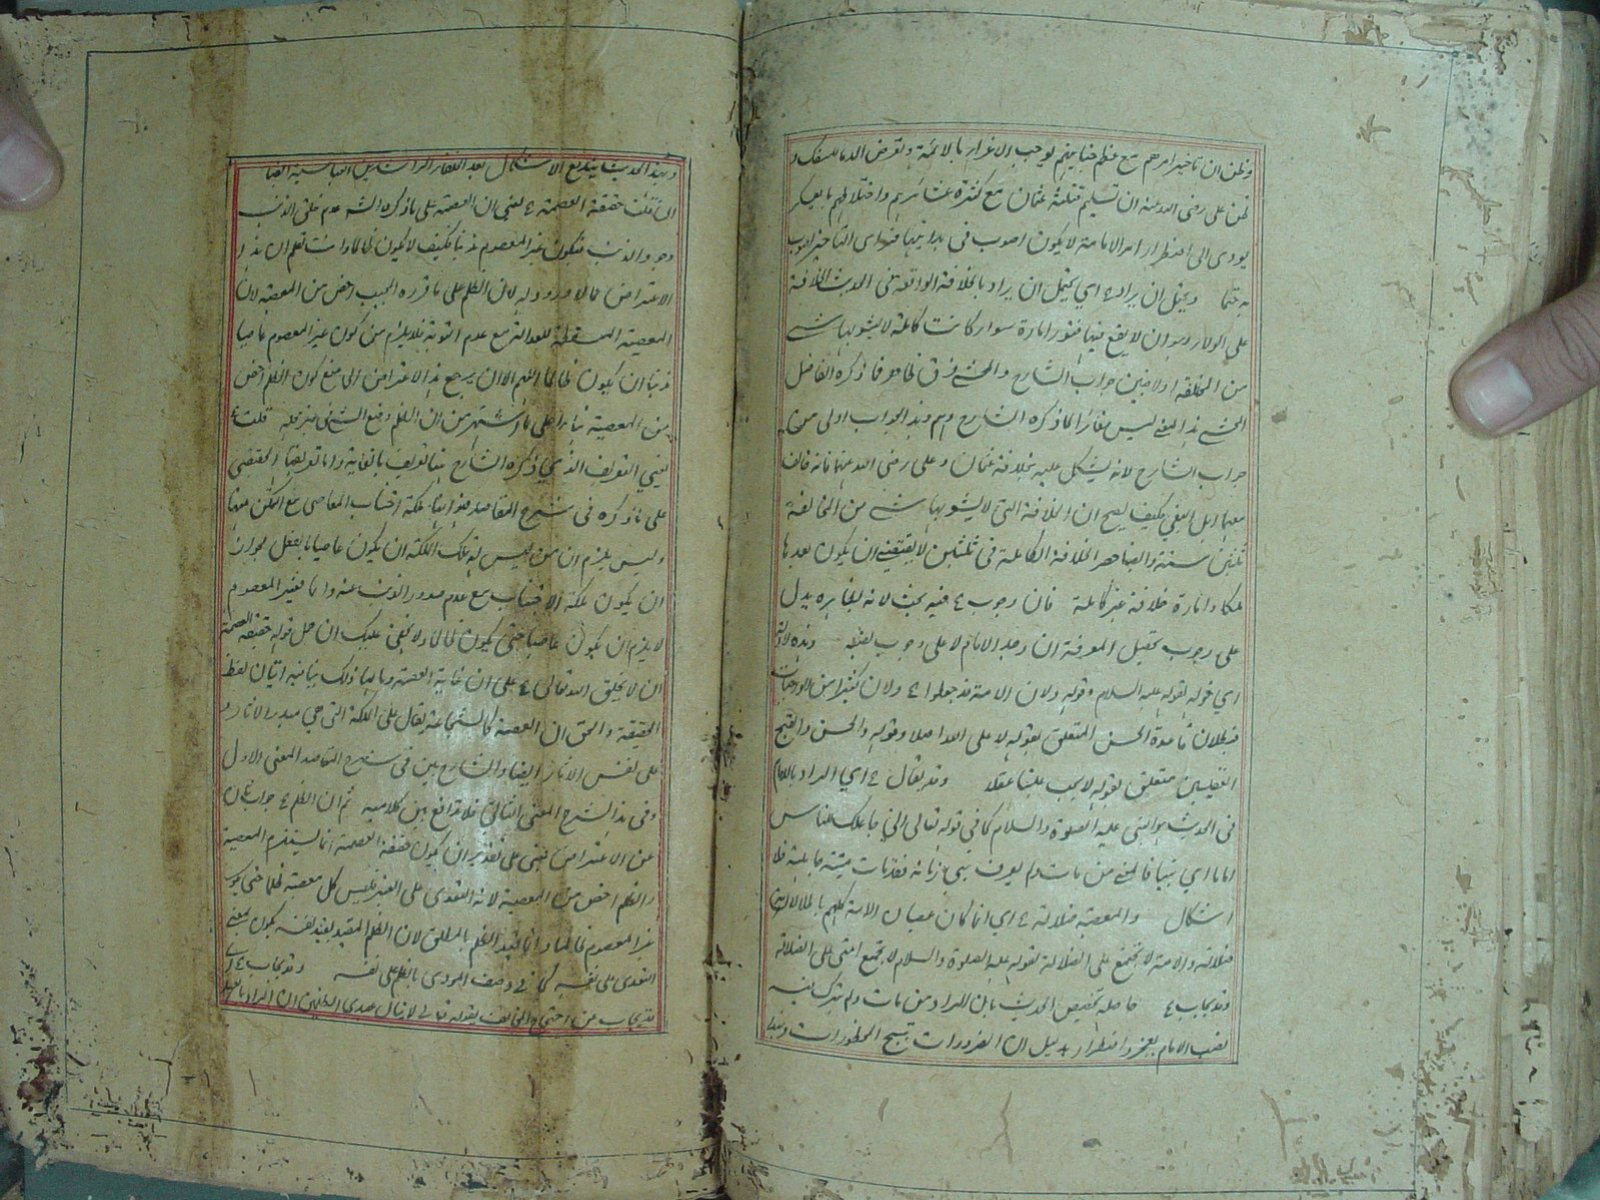 وظن ان تاخير امرهم مع عظم جنايتهم يوجب الاغراء بالائمة وتعرض الدماء للسفك و
ظن على رضى الله عنه ان تسليم قتلة عثمان مع كثرة عشائرهم واختلاطهم بالعسكر
يودى الى اضطراب امر الامامة لا يكون اصوب فى بدايتها فراى التاخير اصوب
ويحتمل ان يراد ء اى يحتمل ان يراد بالخلافة الواقعة فى الحديث الخلافة
على الولاء وهو ان لا يقع فيها فتور امارة سواء كانت كاملة لا يشوبها شئ
من المخالفة او لا فبين جواب الشارح والمحشى فرق ظاهر فما ذكره الفاضل
المحشى هذا المعنى ليس مغائرا لما ذكره الشارح وهم وهذا الجواب اولى من
جواب الشارح لانه يشكل عليه بخلافة عثمان وعلى رضى الله عنهما فانه كان
معها اهل البغى فكيف يصح ان الخلافة التى لا يشوبها شئ من المخالفة
ثلثين سنة وايضا حصر الخلافة الكاملة فى ثلثين لا يقتضى ان يكون بعدها
ملكا وامارة خلافة غير كاملة فان وجوب ء فيه بحث لانه بظاهره يدل
على وجوب تحصيل المعرفة ان وجد الامام لا على وجوب نصبه وهذه الادلة
اى قوله لقوله عليه السلام وقوله ولان الامة قد جعلوا ء ولان كثيرا من الواجبات
فبطلان قاعدة الحسن المتعلق بقوله لا على الله اصلا وقوله والحسن والقبح
العقليين متعلق بقوله لا يجب علينا عقلا وقد يقال ء اى المراد بالامام
فى الحديث هو النبى عليه الصلوة والسلام كما فى قوله تعالى انى جاعلك للناس
اماما اى نبيا فالمعنى من مات ولم يعرف نبى زمانه فقد مات ميتة جاهلية فلا
اشكال والمعصية ضلالة ء اى انما كان عصيان الامة كلهم باطلا لان
ضلالة والامة لا تجتمع على الضلالة لقوله عليه الصلوة والسلام لا تجتمع امتى على الضلالة
وقد يجاب ء حاصله تخصيص الحديث بان المراد من مات ولم يترك نفسه
نصب الامام بعجز واضطرار بدليل ان الضرورات تبيح المحظورات
وبهذا الحديث يندفع الاشكال بعد الخلفاء الراشدين العباسية ايضا
ان قلت حقيقة العصمة ء يعنى ان العصمة على ما ذكره الشارح عدم خلق الذنب
وجود الذنب فيكون غير المعصوم مذنبا فكيف لا يكون ظالما وانت تعلم ان هذا
الاعتراض مما لا ورود له لان الظلم على ما قرره المجيب اخص من المعصية لان
المعصية المسقطة للعدالة مع عدم التوبة فلا يلزم من كون غير المعصوم عاصيا
مذنبا ان يكون ظالما اللهم الا ان يرجع هذا الاعتراض الى منع كون الظلم اخص
من المعصية بناء على ما اشتهر من ان الظلم وضع الشئ فى غير محله قلت ء
يعنى التعريف الذى ذكره الشارح ههنا تعريف بالغاية واما تعريفها الحقيقى
على ما ذكره فى شرح المقاصد فهو انها ملكة اجتناب المعاصى مع التمكن منها
وليس يلزم ان من ليس له تلك الملكة ان يكون عاصيا بالفعل لجواز
ان لا يكون ملكة الاجتناب مع عدم صدور الذنب عنه واما فغير المعصوم
لا يلزم ان يكون عاصيا حتى يكون ظالما ولا يخفى عليك ان حمل قوله حقيقة العصمة
ان لا يخلق الله تعالى ء على ان غاية العصمة ومآلها ذلك ينافيه اتيان لفظ
الحقيقة والحق ان العصمة كالشجاعة يقال على الملكة التى هى مبدء الاثار و
على نفس الاثار ايضا والشارح بين فى شرح المقاصد المعنى الاول
وفى هذا الشرح المعنى الثانى فلا تدافع بين كلاميه ثم ان الظلم ء جواب ثان
عن الاعتراض يعنى على تقدير ان يكون حقيقة العصمة انما يستلزم المعصية
والظلم اخص من المعصية لانه التعدى على الغير فليس كل معصية ظلما حتى يكون
غير المعصوم ظالما وانما قيد الظلم بالمطلق لان الظلم المقيد بقيد نفسه يكون بمعنى
التعدى على نفسه كما فى وصف الموذى بالظلم على نفسه وقد يجاب ء اى
قد يجاب عن احتجاج المخالف بقوله تعالى لا ينال عهدى الظالمين ان المراد بالعهد